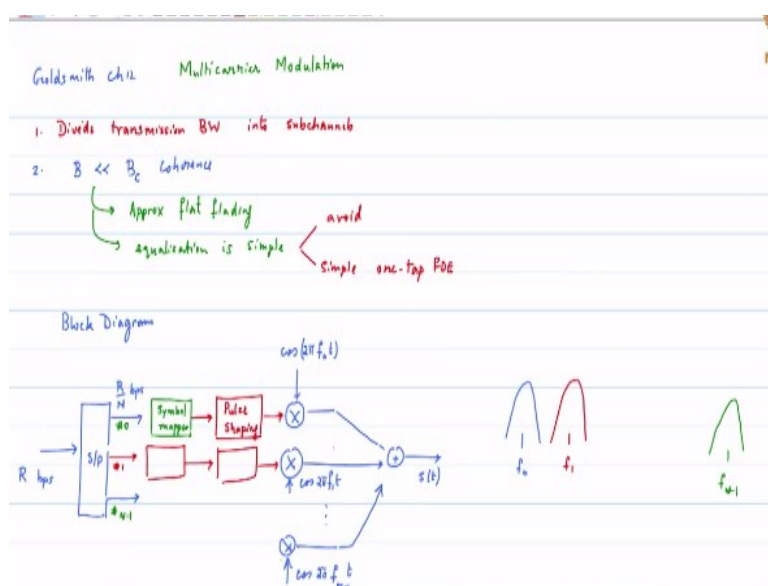 Goldsmith ch12 Multicarrier Modulation
1. Divide transmission BW into subchannels
2. B << Bc coherence
Approx flat flading
equalization is simple
avoid
simple one-tap FDE
Block Diagram
cos(2πf₀t)
R/N bps
#0
Symbol mapper
Pulse Shaping
R bps
S/P
#1
cos 2πf₁t
s(t)
#N-1
cos 2πf t
f₀
f₁
fN-1